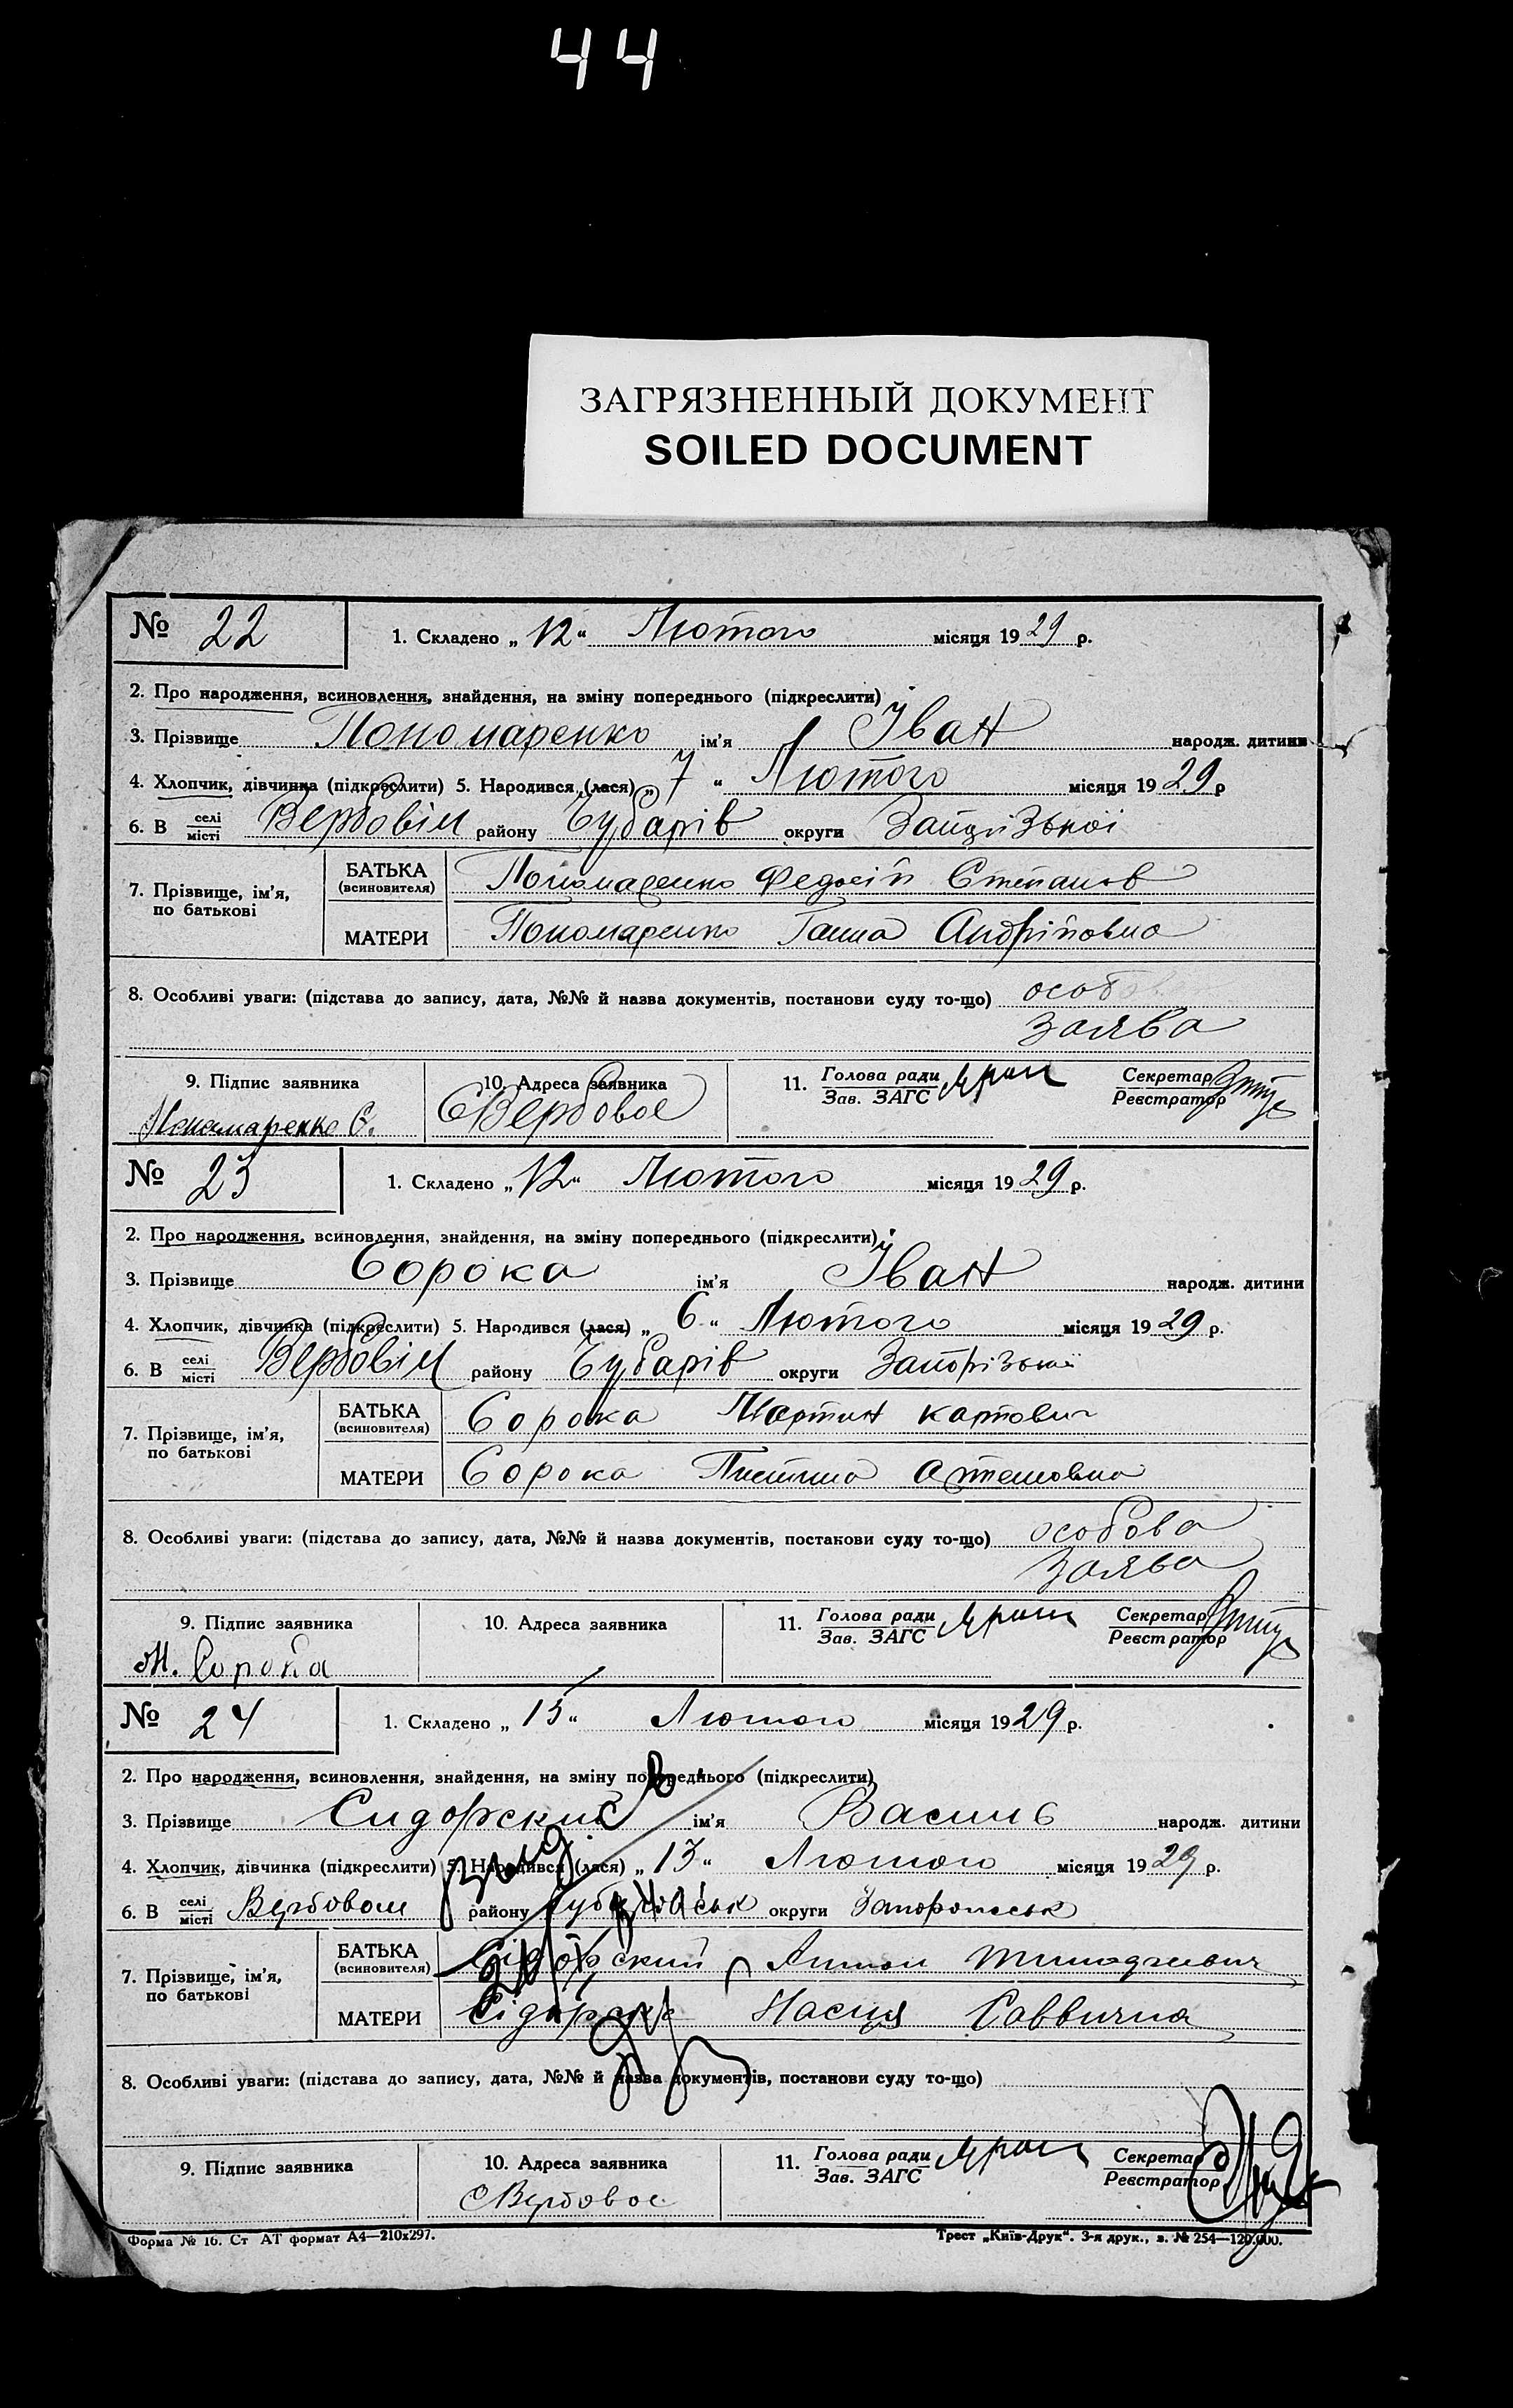 44
ЗАГРЯЗНЕННЫЙ ДОКУМЕНТ
SOILED DOCUMENT
№ 22 1. Складено „12“ Лютого місяця 1929 р.
2. Про народження, всиновлення, знайдення, на зміну попереднього (підкреслити)
3. Прізвище Пономаренко ім’я Іван народж. дитини
4. Хлопчик, дівчинка (підкреслити) 5. Народився (лася) „7“ Лютого місяця 1929 р
6. В селі/місті Вербовім району Чубарів округи Запорізької
7. Прізвище, ім’я, по батькові
БАТЬКА (всиновителя) Пономаренко Федосій Степанов
МАТЕРИ Пономаренко Ганна Андріївна
8. Особливі уваги: (підстава до запису, дата, №№ й назва документів, постанови суду то-що) особова
заява
9. Підпис заявника 10. Адреса заявника 11. Голова ради Секретар
Зав. ЗАГС Реєстратор
Пономаренко С. Вербовое
№ 23 1. Складено „12“ Лютого місяця 1929 р.
2. Про народження, всиновлення, знайдення, на зміну попереднього (підкреслити)
3. Прізвище Сорока ім’я Іван народж. дитини
4. Хлопчик, дівчинка (підкреслити) 5. Народився (лася) „6“ Лютого місяця 1929 р.
6. В селі/місті Вербовім району Чубарів округи Запорізької
7. Прізвище, ім’я, по батькові
БАТЬКА (всиновителя) Сорока Мартин Карпович
МАТЕРИ Сорока Пистина Артемовна
8. Особливі уваги: (підстава до запису, дата, №№ й назва документів, постанови суду то-що) особова
заява
9. Підпис заявника 10. Адреса заявника 11. Голова ради Секретар
Зав. ЗАГС Реєстратор
М. Сорока
№ 24 1. Складено „15“ Лютого місяця 1929 р.
2. Про народження, всиновлення, знайдення, на зміну попереднього (підкреслити)
3. Прізвище Сидорский ім’я Василь народж. дитини
4. Хлопчик, дівчинка (підкреслити) 5. Народився (лася) „13“ Лютого місяця 1929 р.
6. В селі/місті Вербовом району округи
7. Прізвище, ім’я, по батькові
БАТЬКА (всиновителя) Сідорский Антон
МАТЕРИ Настя Саввична
8. Особливі уваги: (підстава до запису, дата, №№ й назва документів, постанови суду то-що)
9. Підпис заявника 10. Адреса заявника 11. Голова ради Секретар
Зав. ЗАГС Реєстратор
Вербовое
Форма № 16. Ст АТ формат А4—210х297. Трест „Київ-Друк“. 3-я друк., з. № 254—120.000.